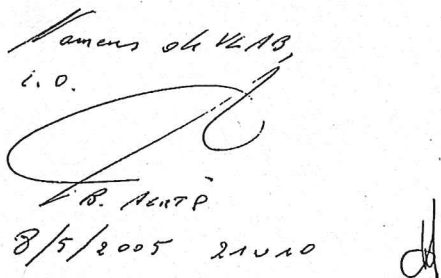 Namens de VLAB,
i.o.
B. Aerts
8/5/2005 21u10